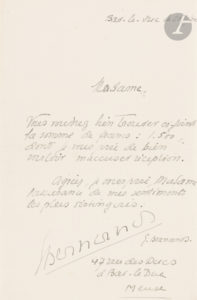 Bar-le-Duc
Madame,
Vous voudrez bien trouver ci-joint
la somme de francs : 1.500
dont je vous prie de bien
vouloir m'accuser réception.
Agréez je vous prie Madame
de mes sentiments
les plus distingués.
Bernanos
G. Bernanos.
47 rue des Ducs
à Bar-le-Duc
Meuse